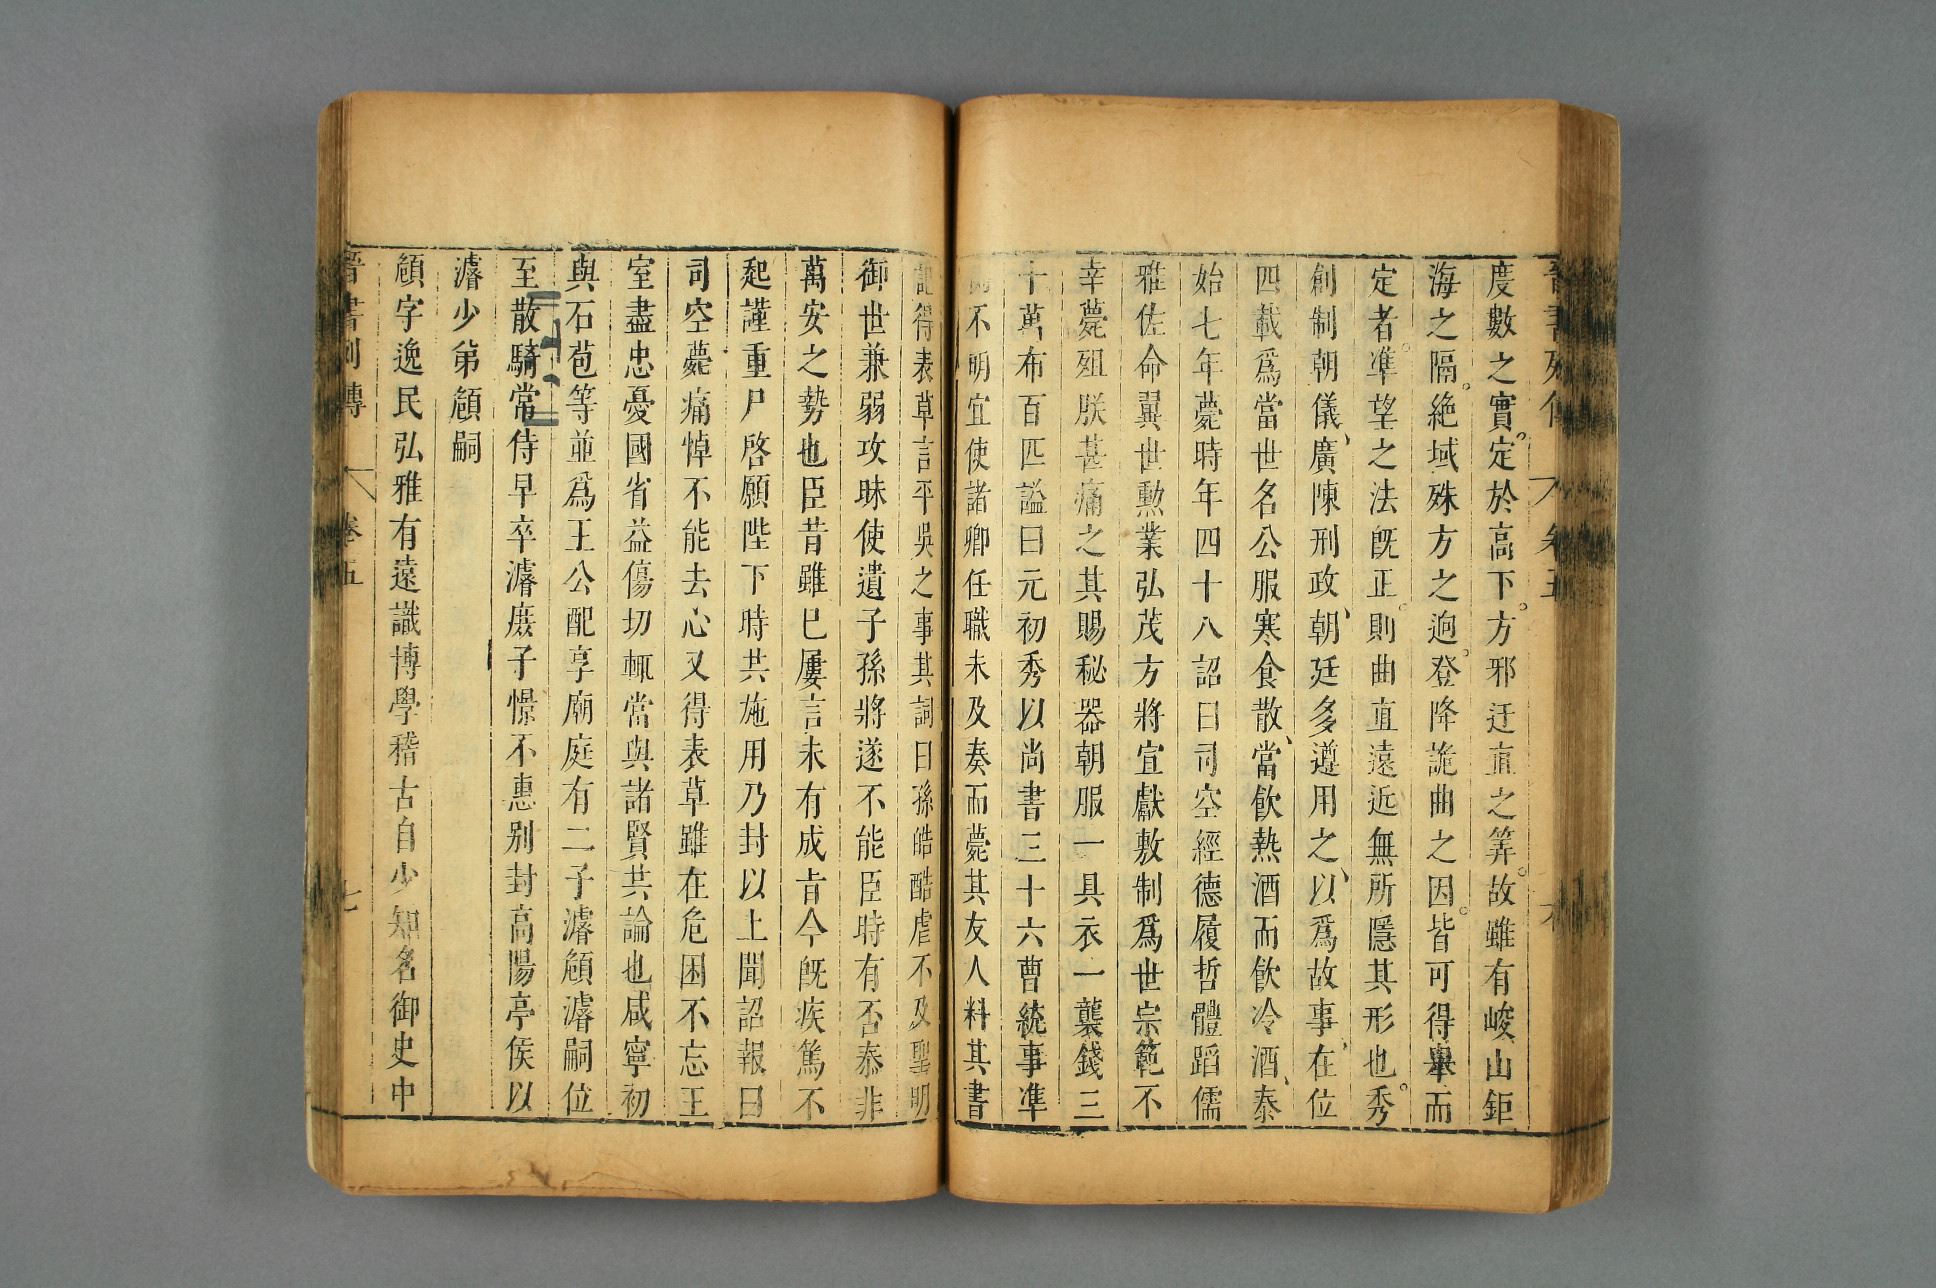 度數之實。定於高下。方邪迂直之筭。故雖有峻山鉅
海之隔。絶域殊方之逈。登降詭曲之因。皆可得舉而
定者。凖望之法旣正。則曲直遠近無所隱其形也。秀
創制朝儀、廣陳刑政、朝廷多遵用之、以爲故事、在位
四載爲當世名公服寒食散、當飮熱酒而飮冷酒、泰
始七年薨時年四十八詔曰司空經德履哲體蹈儒
雅佐命翼世勲業弘茂方將宣獻敷制爲世宗範不
幸薨殂朕甚痛之其賜秘器朝服一具衣一襲錢三
十萬布百匹謚曰元初秀以尚書三十六曹統事凖
不明宜使諸卿任職未及奏而薨其友人料其書
記得表草言平吳之事其詞曰孫皓酷虐不及聖明
御世兼弱攻昧使遺子孫將遂不能臣時有否泰非
萬安之勢也臣昔雖巳屢言未有成旨今旣疾篤不
起謹重尸啓願陛下時共施用乃封以上聞詔報曰
司空薨痛悼不能去心又得表草雖在危困不忘王
室盡忠憂國省益傷切輒當與諸賢共論也咸寧初
與石苞等並爲王公配享廟庭有二子濬頠濬嗣位
至散騎常侍早卒濬庶子憬不惠别封高陽亭侯以
濬少弟頠嗣
頠字逸民弘雅有遠識博學稽古自少知名御史中
晉書列傳 卷五 七